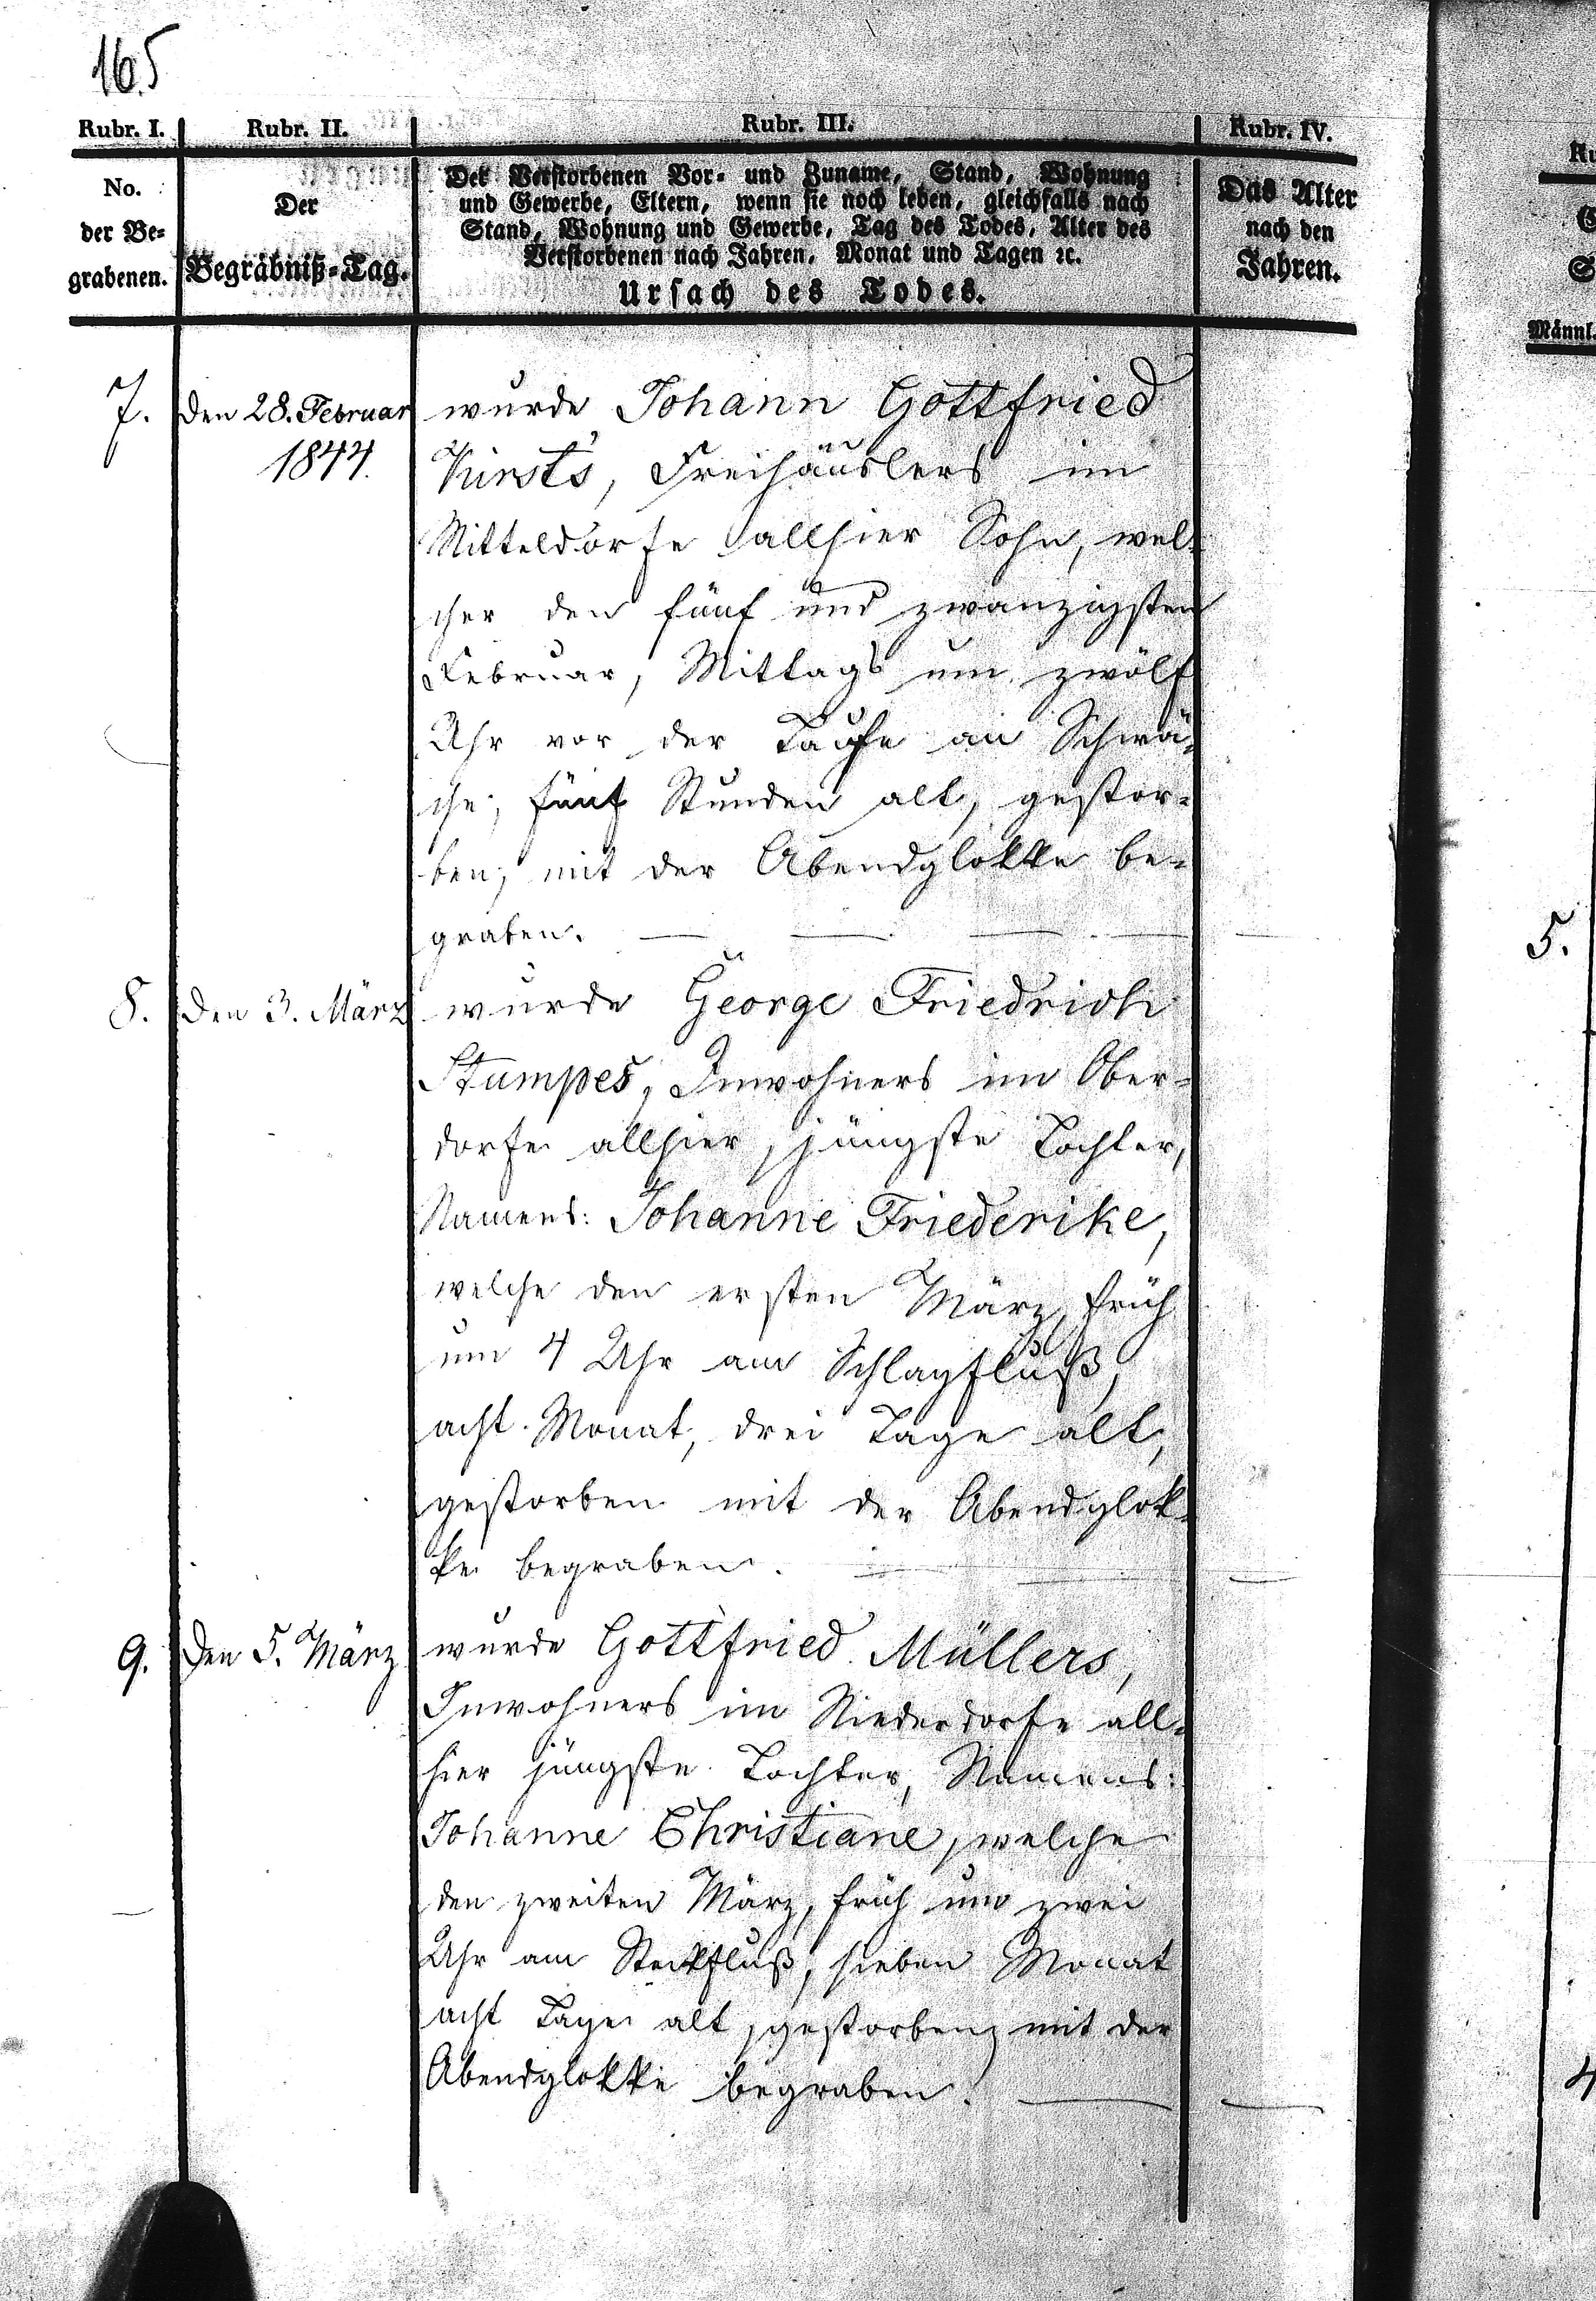 165
Rubr. I. Rubr. II. Rubr. III. Rubr. IV.
No.
der Be-
grabenen.
Der
Begräbniß-Tag.
Der Verstorbenen Vor- und Zuname, Stand, Wohnung
und Gewerbe, Eltern, wenn sie noch leben, gleichfalls nach
Stand, Wohnung und Gewerbe, Tag des Todes, Alter des
Verstorbenen nach Jahren, Monat und Tagen ꝛc.
Ursach des Todes.
Das Alter
nach den
Jahren.
Männl.
7. Den 28. Februar wurde Johann Gottfried
1844. Kirsts, Freihäuslers im
Mitteldorfe allhier Sohn, wel-
cher den fünf und zwanzigsten
Februar, Mittags um zwölf
Uhr vor der Taufe an Schwä-
che, fünf Stunden alt, gestor-
ben, mit der Abendglokke be-
graben.
8. Den 3. März wurde George Friedrich
Stumpes, Inwohners im Ober-
dorfe allhier, jüngste Tochter,
Namens: Johanne Friederike,
welche den ersten März, früh
um 4 Uhr am Schlagfluß,
acht Monat, drei Tage alt,
gestorben mit der Abendglok-
ke begraben.
9. Den 5. März wurde Gottfried Müllers,
Inwohners im Niederdorfe all-
hier jüngste Tochter, Namens:
Johanne Christiane, welche
den zweiten März, früh um zwei
Uhr am Steckfluß, sieben Monat
acht Tage alt, gestorben, mit der
Abendglokke begraben.
5.
4